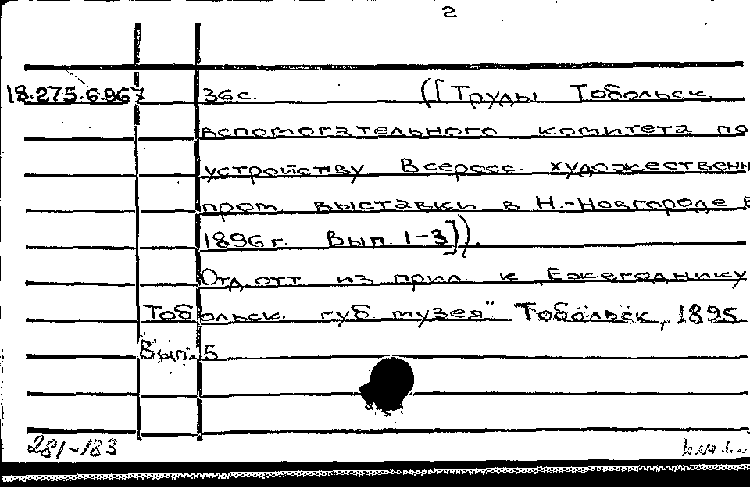 2
18.275.6.967 36с. ([Труды Тобольск.
вспомогательного комитета по
устройству Всеросс. художественн
пром. выставки в Н.-Новгороде в
1896 г. Вып. 1-3]).
Отд. отт. из прил. к „Ежегоднику
Тобольск. губ. музея" Тобольск, 1895
Вып. 5
281-183